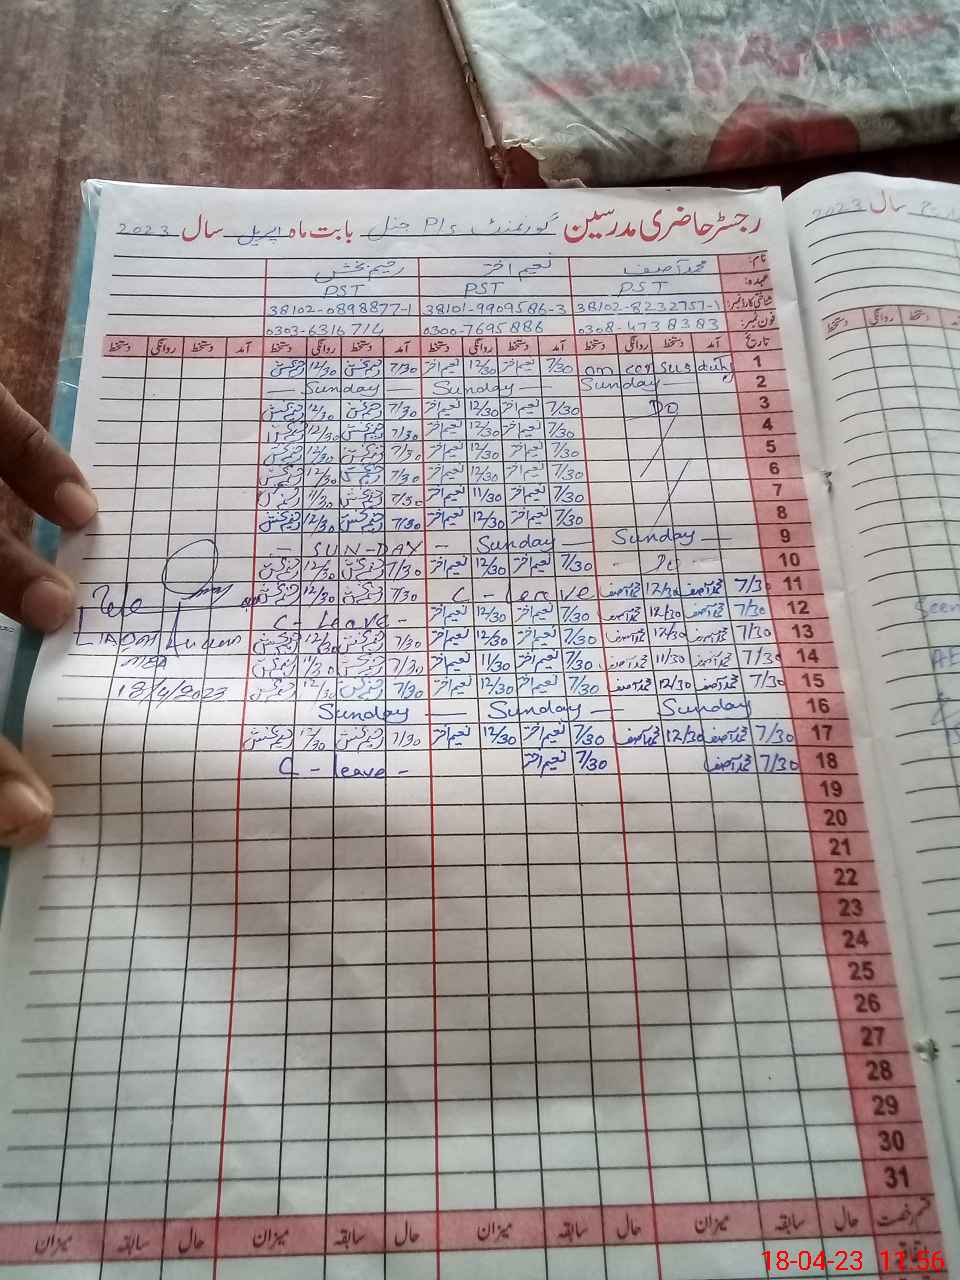 رجسٹر حاضری مدرسین گورنمنٹ P/s جنل بابت ماہ اپریل سال 2023
نام: محمد آصف نعیم اختر رحیم بخش
عہدہ: PST PST PST
شناختی کارڈ نمبر: 38102-8232757-1 38101-9909586-3 38102-0898877-1
فون نمبر: 0308-4738383 0300-7695886 0303-6316714
تاریخ آمد دستخط روانگی دستخط آمد دستخط روانگی دستخط آمد دستخط روانگی دستخط آمد دستخط روانگی دستخط
1 on census duty 7/30 نعیم اختر 12/30 نعیم اختر 7/30 12/30
2 Sunday Sunday Sunday
3 Do 7/30 نعیم اختر 12/30 نعیم اختر 7/30 12/30
4 7/30 نعیم اختر 12/30 نعیم اختر 7/30 12/30
5 7/30 نعیم اختر 12/30 نعیم اختر 7/30 12/30
6 7/30 نعیم اختر 12/30 نعیم اختر 7/30 12/30
7 7/30 نعیم اختر 11/30 نعیم اختر 7/30 11/30
8 7/30 نعیم اختر 12/30 نعیم اختر 7/30 12/30
9 Sunday Sunday SUN-DAY
10 Do 7/30 نعیم اختر 12/30 نعیم اختر 7/30 12/30
11 7/30 محمد آصف 12/30 محمد آصف C-leave 7/30 12/30
12 7/30 محمد آصف 12/30 محمد آصف 7/30 نعیم اختر 12/30 نعیم اختر C-leave-
13 7/30 محمد آصف 12/30 محمد آصف 7/30 نعیم اختر 12/30 نعیم اختر 7/30 12/30
14 7/30 محمد آصف 11/30 محمد آصف 7/30 نعیم اختر 11/30 نعیم اختر 7/30 11/30
MEA
15 7/30 محمد آصف 12/30 محمد آصف 7/30 نعیم اختر 12/30 نعیم اختر 7/30 12/30
18/4/2023
16 Sunday Sunday Sunday
17 7/30 محمد آصف 12/30 محمد آصف 7/30 نعیم اختر 12/30 نعیم اختر 7/30 12/30
18 7/30 محمد آصف 7/30 نعیم اختر C-leave-
19
20
21
22
23
24
25
26
27
28
29
30
31
قسم رخصت حال سابقہ میزان حال سابقہ میزان حال سابقہ میزان حال سابقہ میزان
سال 2023
دستخط روانگی دستخط
Seen
18-04-23 11:56